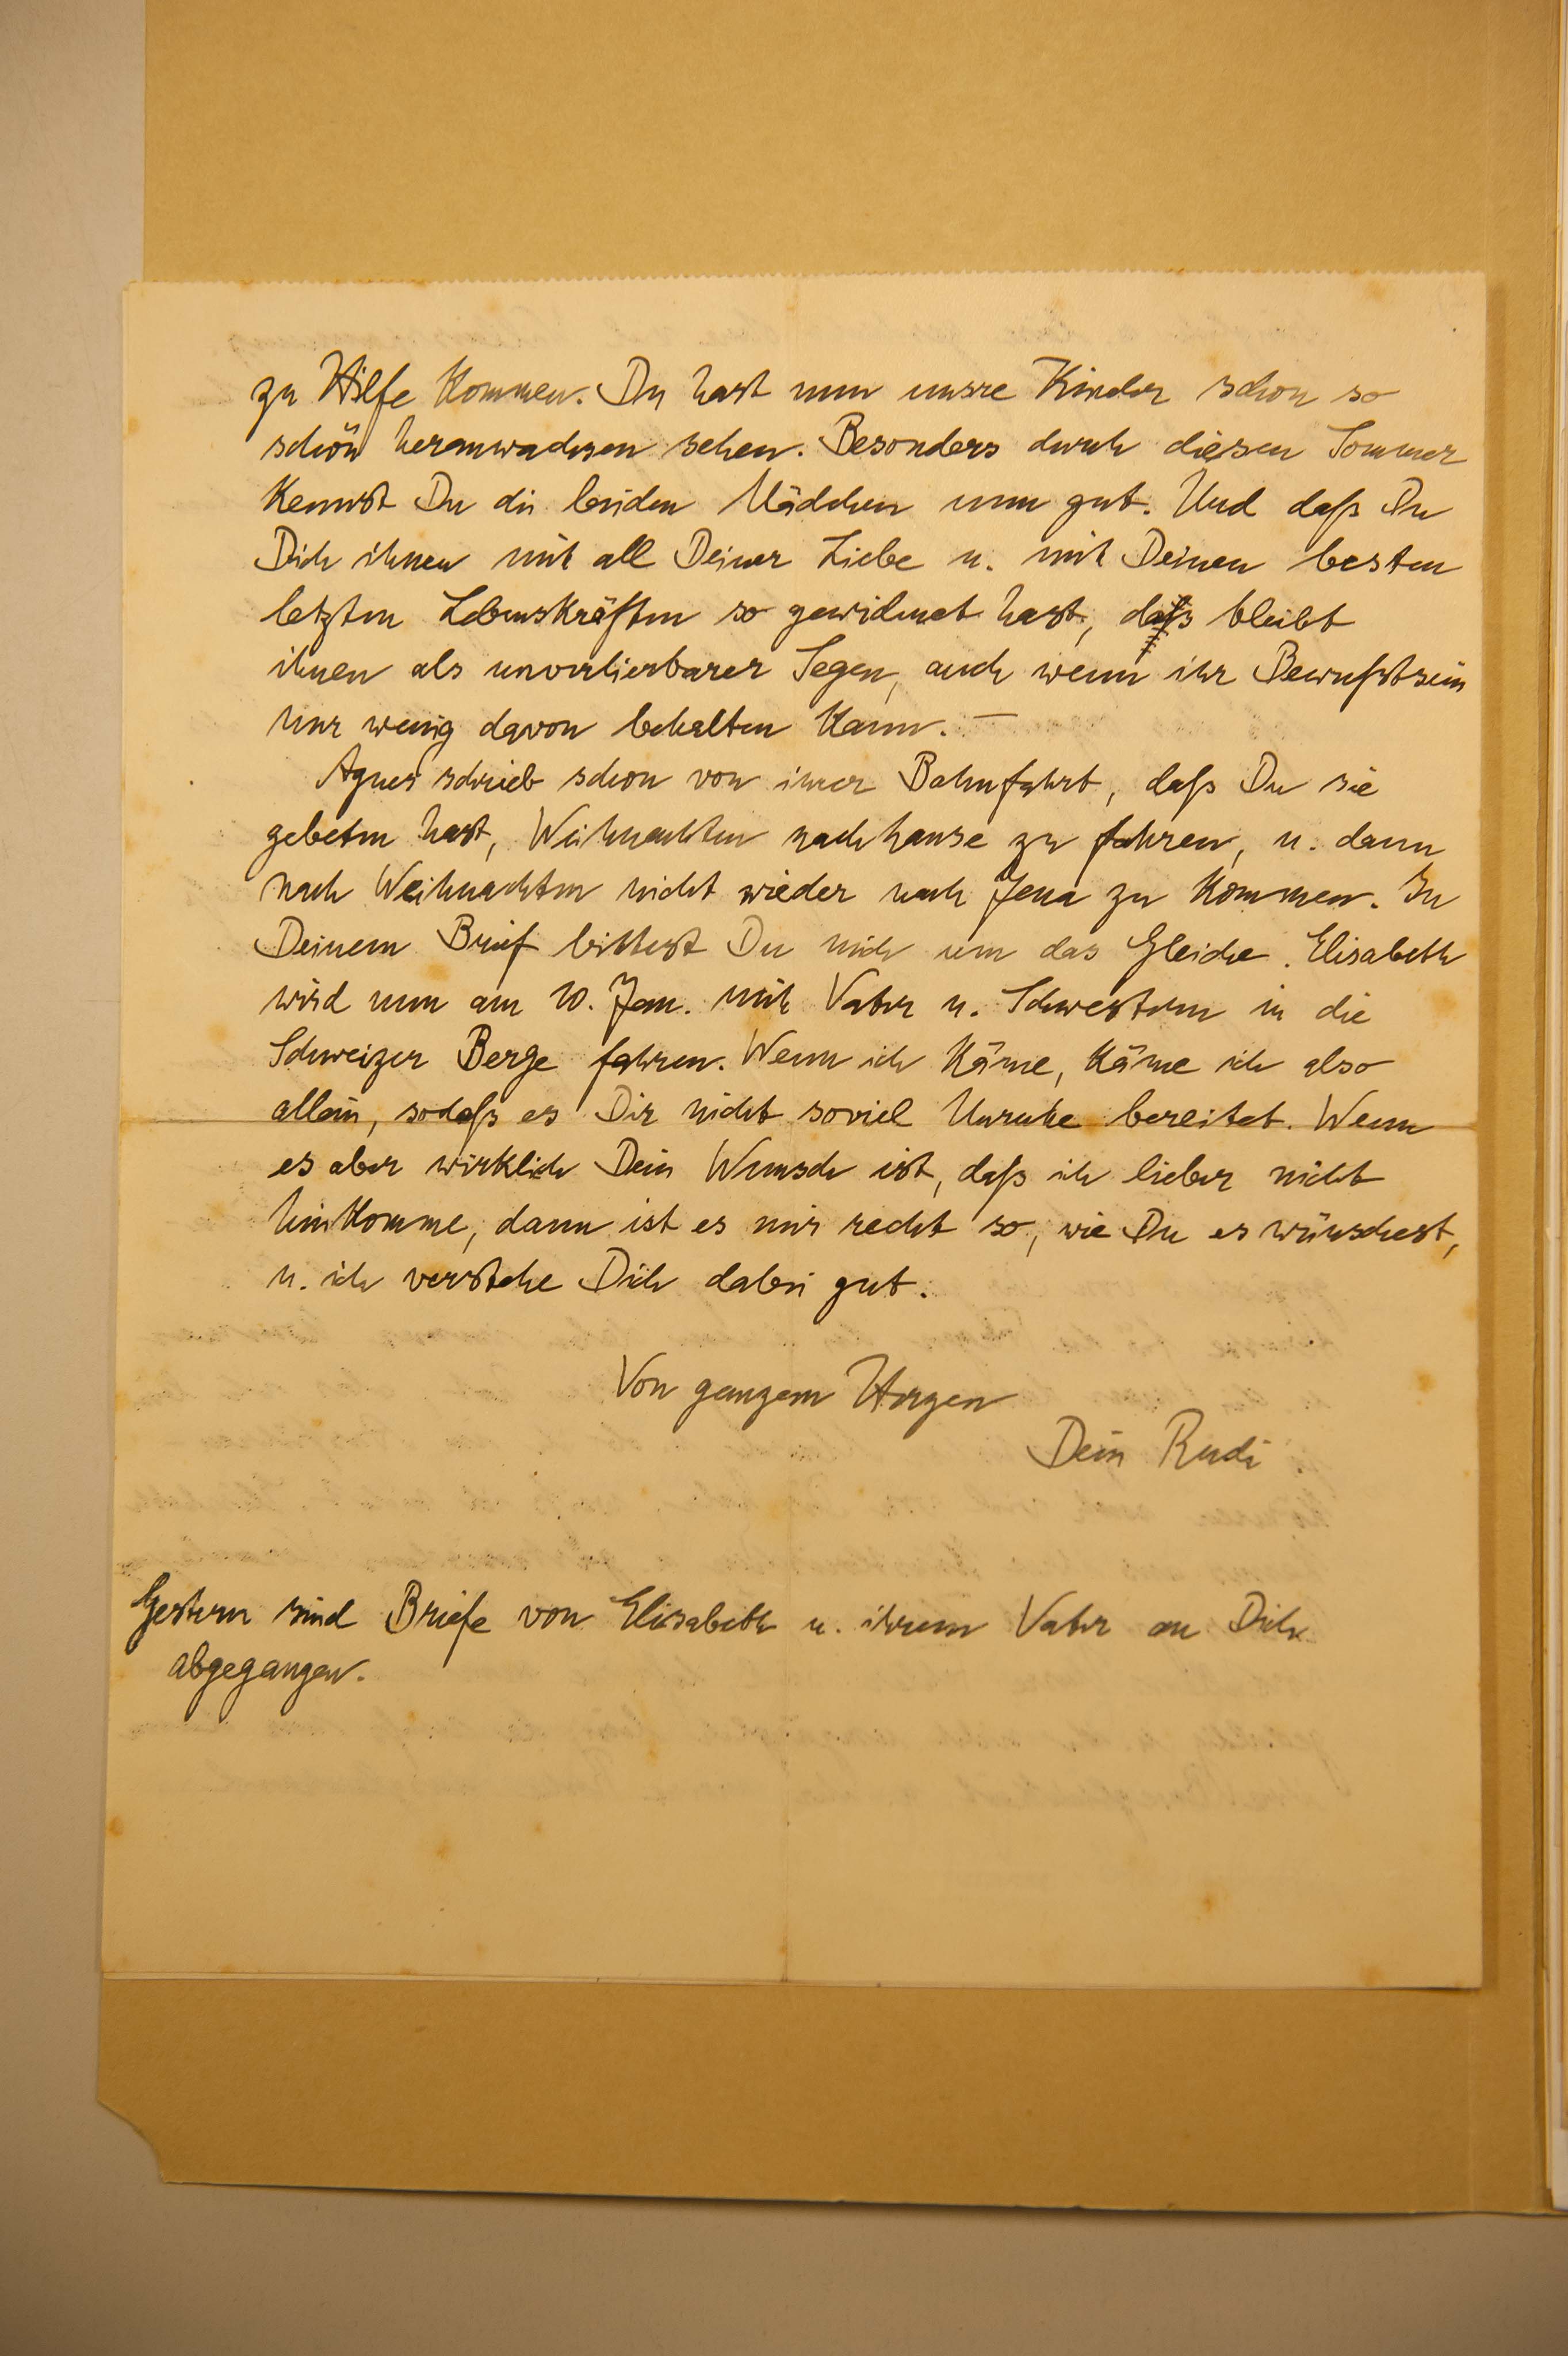 zu Hilfe kommen. Du hast nun unsre Kinder schon so
schön heranwachsen sehen. Besonders durch diesen Sommer
kennst Du die beiden Mädchen nun gut. Und daß Du
Dich ihnen mit all Deiner Liebe u. mit Deinen besten
letzten Lebenskräften so gewidmet hast, das bleibt
ihnen als unverlierbarer Segen, auch wenn ihr Bewußtsein
nur wenig davon behalten kann. —
Agnes schrieb schon von ihrer Bahnfahrt, daß Du sie
gebeten hast, Weihnachten nachhause zu fahren, u. dann
nach Weihnachten nicht wieder nach Jena zu kommen. In
Deinem Brief bittest Du mich um das Gleiche. Elisabeth
wird nun am 10. Jan. mit Vater u. Schwestern in die
Schweizer Berge fahren. Wenn ich käme, käme ich also
allein, sodaß es Dir nicht soviel Unruhe bereitet. Wenn
es aber wirklich Dein Wunsch ist, daß ich lieber nicht
hinkomme, dann ist es mir recht so, wie Du es wünschest,
u. ich verstehe Dich dabei gut.
Von ganzem Herzen
Dein Rudi.
Gestern sind Briefe von Elisabeth u. ihrem Vater an Dich
abgegangen.